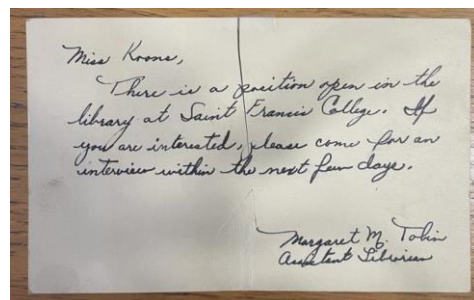 Miss Koons,
There is a position open in the
library at Saint Francis College. If
you are interested, please come for an
interview within the next few days.
Margaret M. Tobin
Assistant Librarian